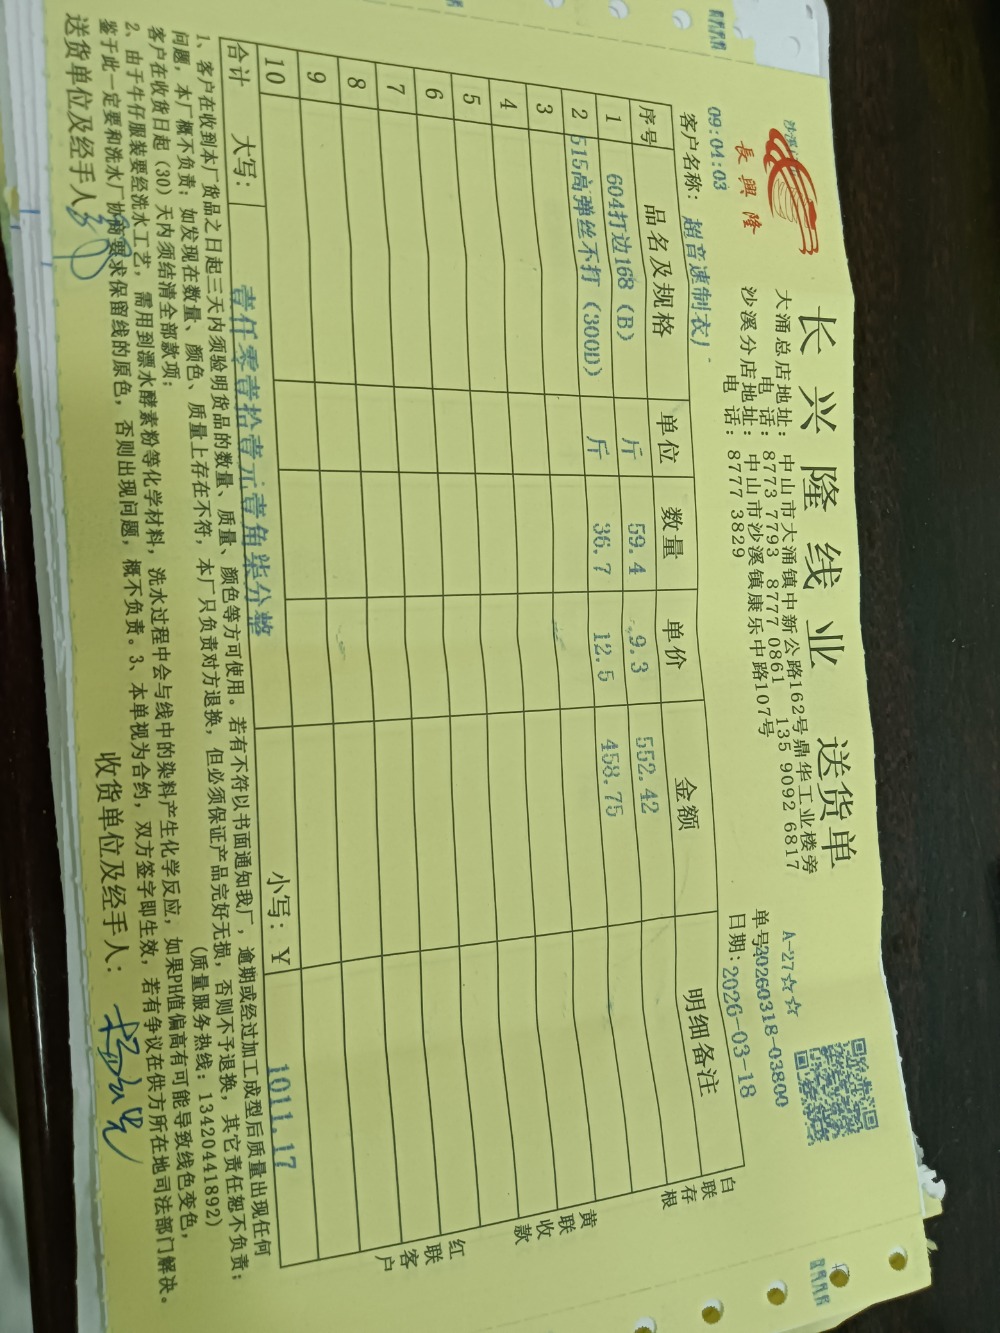 長興隆
长兴隆线业 送货单
大涌总店地址：中山市大涌镇中新公路162号鼎华工业楼旁
电 话：8773 7793 8777 0861 135 9092 6817
沙溪分店地址：中山市沙溪镇康乐中路107号
电 话：8777 3829
A-27☆☆
单号20260318-03800
日期：2026-03-18
09:04:03
客户名称：超音速制衣厂
序号 品名及规格 单位 数量 单价 金额 明细备注
1 604打边168（B） 斤 59.4 9.3 552.42
2 515高弹丝不打（300D） 斤 36.7 12.5 458.75
3
4
5
6
7
8
9
10
合计 大写：壹仟零壹拾壹元壹角柒分整 小写：Y 1011.17
白联存根
黄联收款
红联客户
1、客户在收到本厂货品之日起三天内须验明货品的数量、质量、颜色等方可使用。若有不符以书面通知我厂，逾期或经过加工成型后质量出现任何
问题，本厂概不负责；如发现在数量、颜色、质量上存在不符，本厂只负责对方退换，但必须保证产品完好无损，否则不予退换，其它责任恕不负责；
客户在收货日起（30）天内须结清全部款项； （质量服务热线：13420441892）
2、由于牛仔服装要经洗水工艺，需用到漂水酵素粉等化学材料，洗水过程中会与线中的染料产生化学反应，如果PH值偏高有可能导致线色变色，
鉴于此一定要和洗水厂协商要求保留线的原色，否则出现问题，概不负责。3、本单视为合约，双方签字即生效，若有争议在供方所在地司法部门解决。
送货单位及经手人 收货单位及经手人：